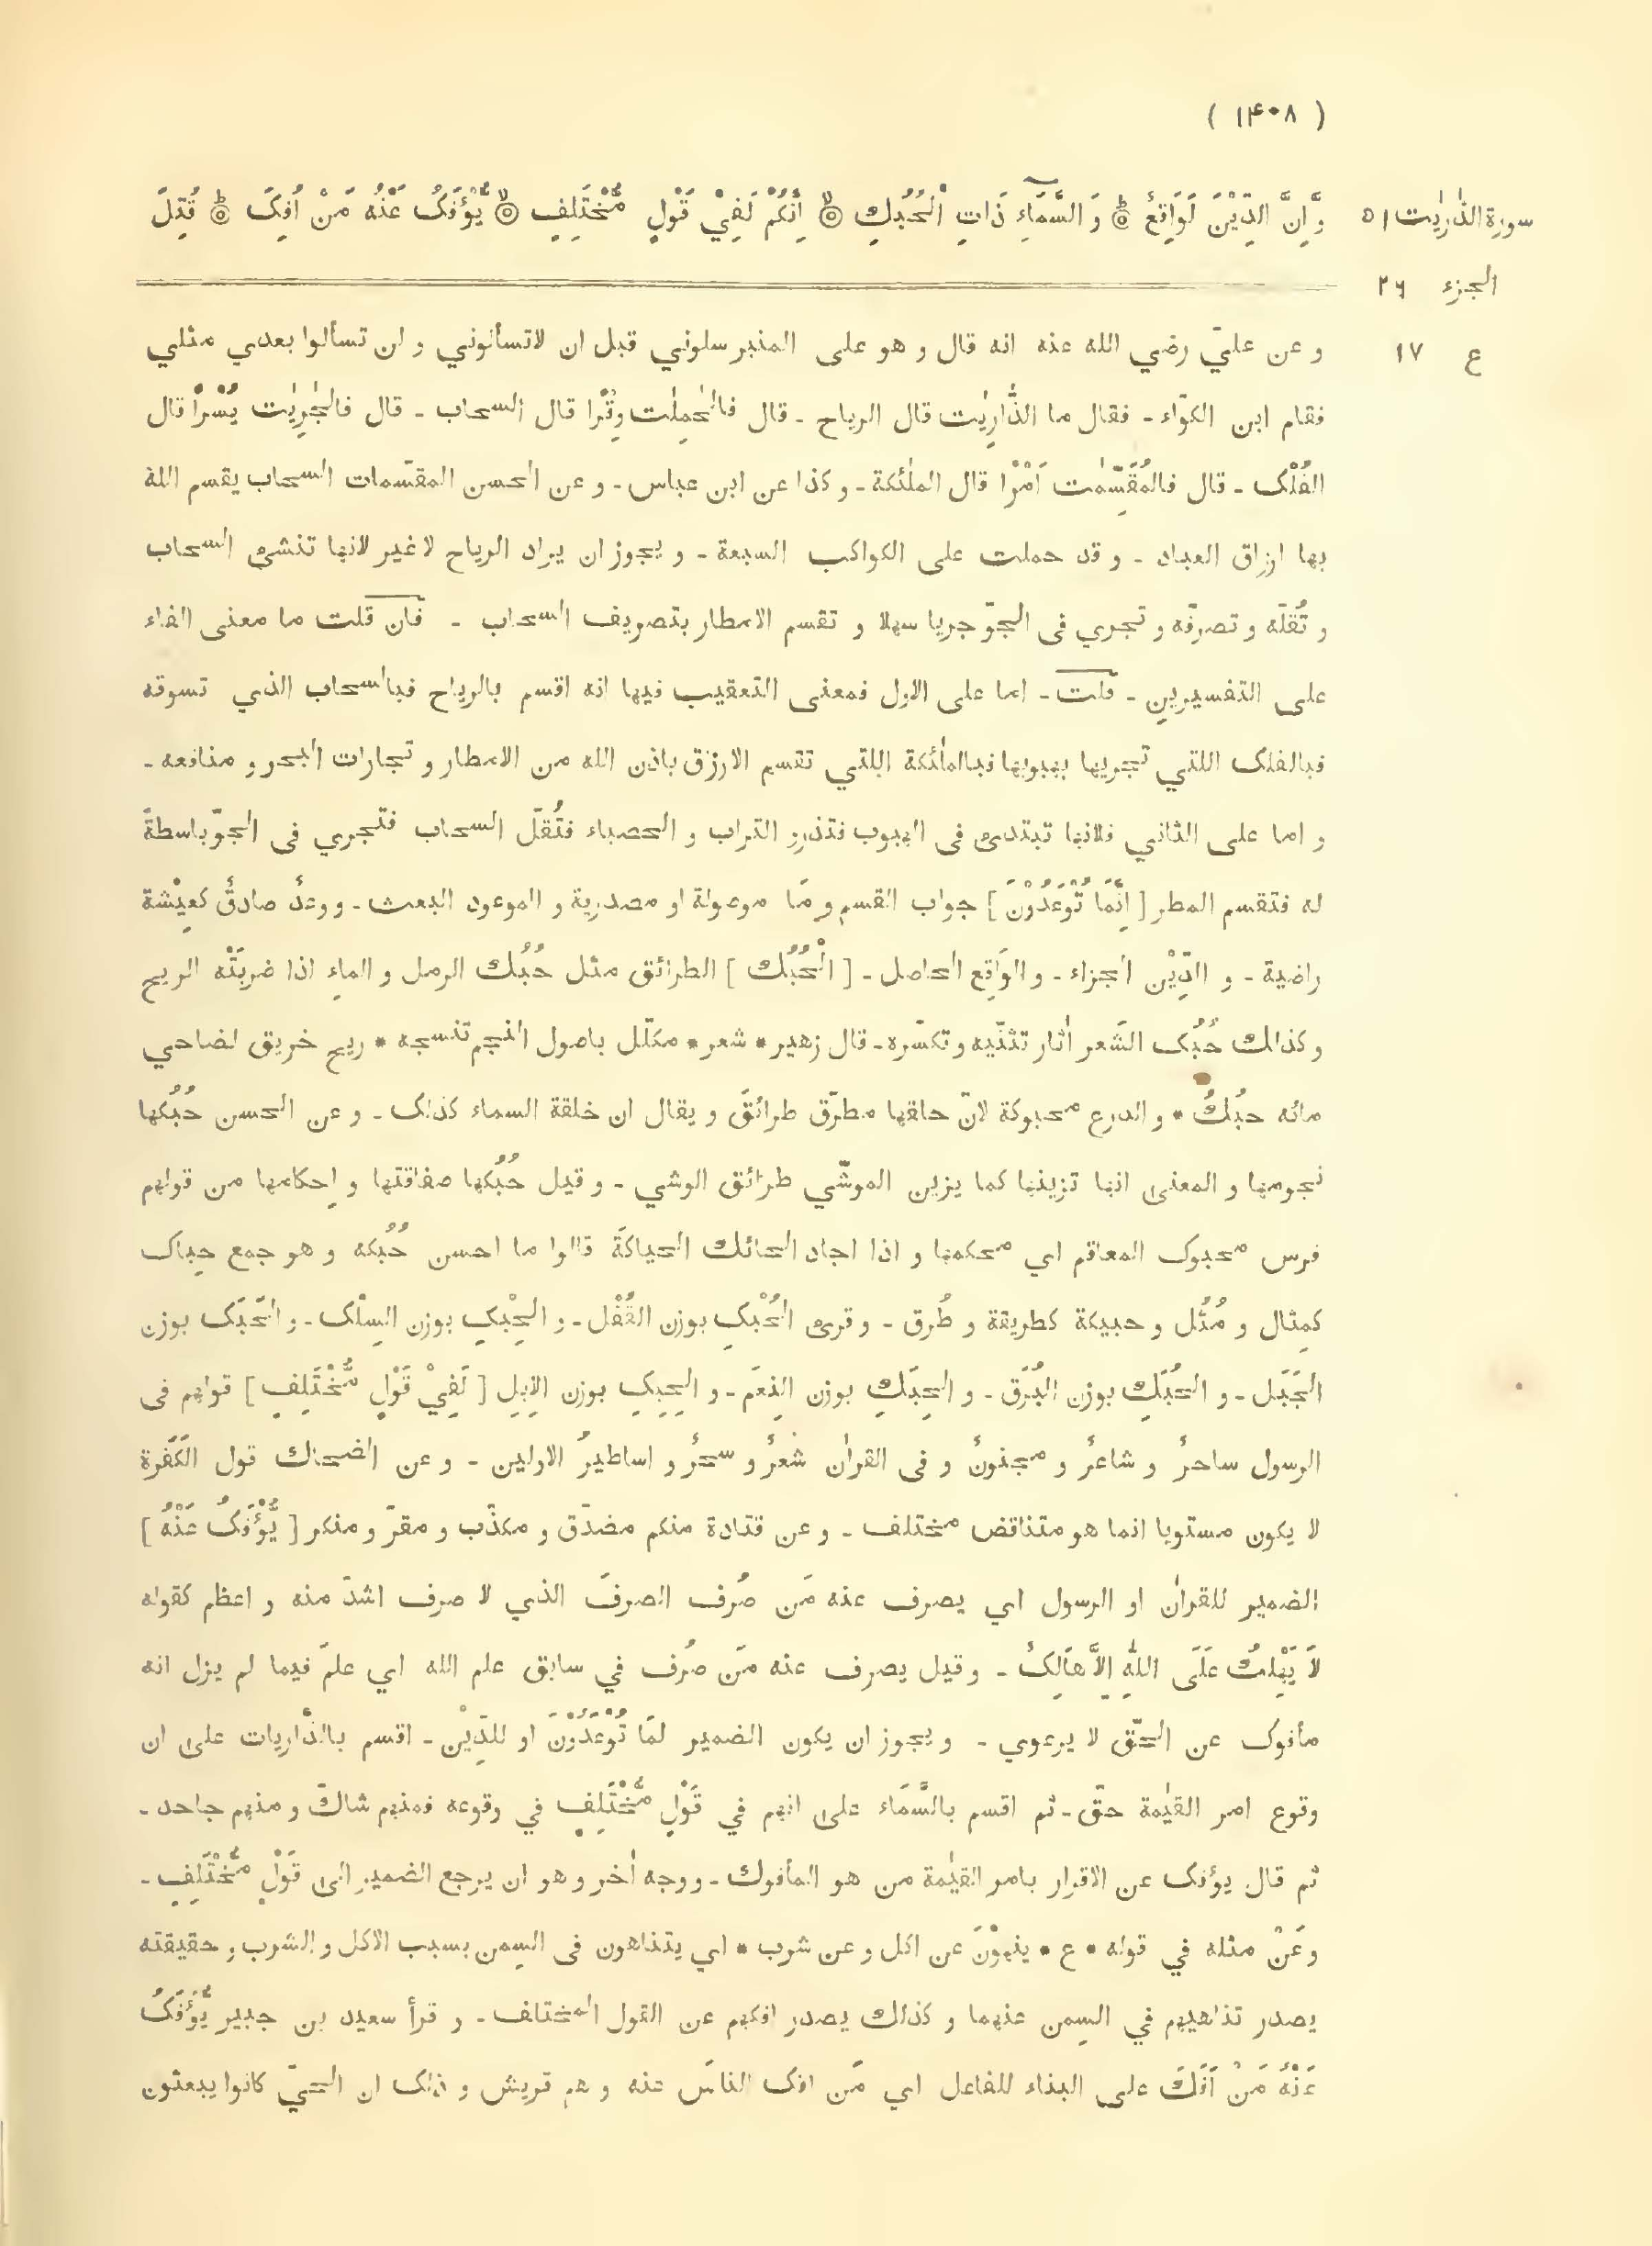 ( ١۴٠٨ )
سورة الذٰريٰت ٥١
وَّاِنَّ الدِّيْنَ لَوَاقِعٌ ۞ وَ السَّمَاءِ ذَاتِ الْحُبُكِ ۞ اِنَّكُمْ لَفِيْ قَوْلٍ مُّخْتَلِفٍ ۞ يُّؤْفَكُ عَنْهُ مَنْ اُفِكَ ۞ قُتِلَ
الجزء ٢٦
ع ١٧
و عن عليّ رضي الله عنه انه قال و هو على المنبر سلوني قبل ان لاتسألوني و لن تسألوا بعدي مثلي
فقام ابن الكوّاء - فقال ما الذّٰارِيٰت قال الرياح - قال فالحٰمِلٰت وِقْرا قال السحاب - قال فالجٰرِيٰت يُسْرًا قال
الفُلْک - قال فالمُقَسِّمٰت اَمْرًا قال الملٰئكة - و كذا عن ابن عباس - و عن الحسن المقسّمات السحاب يقسم الله
بها ارزاق العباد - و قد حملت على الكواكب السبعة - و يجوز ان يراد الرياح لاغير لانها تنشئ السحاب
و تُقلّه و تصرفه و تجري فى الجوّ جريا سهلا و تقسم الامطار بتصريف السحاب - فان قلت ما معنى الفاء
على التفسيرين - قلت - اما على الاول فمعنى التعقيب فيها انه اقسم بالرياح فبالسحاب الذي تسوقه
فبالفلک اللتي تجريها بهبوبها فبالملٰئكة اللتي تقسم الارزق باذن الله من الامطار و تجارات البحر و منافعه -
و اما على الثاني فلانها تبتدئ فى الهبوب فتذرو التراب و الحصباء فتُقلّ السحاب فتجري فى الجوّ باسطةً
له فتقسم المطر [ اِنَّمَا تُوْعَدُوْنَ ] جواب القسم و مَا موصولة او مصدرية و الموعود البعث - و وعدٌ صادقٌ كعِيْشة
راضية - و الدِّيْن الجزاء - و الوَاقِع الحاصل - [ الْحُبُك ] الطرائق مثل حُبُك الرمل و الماء اذا ضربَتْه الريح
و كذالك حُبُک الشَعر اٰثار تثنّيه و تكسّره - قال زهير * شعر * مكلّل باصول النجم تنسجه * ريح خريق لضاحي
مائه حبُكٌ * و الدرع محبوكة لانّ حلقها مطرّق طرائقَ و يقال ان خلقة السماء كذلک - و عن الحسن حُبُكها
نجومها و المعنى انها تزينها كما يزين الموشّي طرائق الوشي - و قيل حُبُكها صفاقتها و إحكامها من قولهم
فرس محبوک المعاقم اي محكمها و اذا اجاد الحائك الحياكةَ قالوا ما احسن حُبُكه و هو جمع حِباک
كمِثال و مُثُل و حبيكة كطريقة و طُرق - و قرئ الحُبْكِ بوزن القُفْل - و الحِبْكِ بوزن السِلْک - و الحَبَک بوزن
الجَبَل - و الحُبَكِ بوزن البُرَق - و الحِبَكِ بوزن النِعَم - و الحِبِكِ بوزن الاِبِلِ [ لَفِيْ قَوْلٍ مُّخْتَلِفٍ ] قولهم فى
الرسول ساحرٌ و شاعرٌ و مجنونٌ و فى القراٰن شعرٌ و سحرٌ و اساطيرُ الاولين - و عن الضحاك قول الكَفَرة
لا يكون مستويا انما هو متناقض مختلف - و عن قتادة منكم مصدّق و مكذّب و مقرّ و منكر [ يُّؤْفَكُ عَنْهُ ]
الضمير للقراٰن او الرسول اي يصرف عنه مَن صُرف الصرفَ الذي لا صرف اشدّ منه و اعظم كقوله
لاَ يَهْلِكُ عَلَى اللّٰهِ اِلاَّ هَالِكٌ - و قيل يصرف عنه مَن صُرف في سابق علم الله اي علمَ فيما لم يزل انه
مأفوک عن الحقّ لا يرعوي - و يجوز ان يكون الضمير لمَا تُوْعَدُوْنَ او للدِّيْن - اقسم بالذّاريات على ان
وقوع امر القيٰمة حقّ - ثم اقسم بالسَّمَاء على انهم في قَوْلٍ مُّخْتَلِفٍ في وقوعه فمنهم شاكّ و منهم جاحد -
ثم قال يؤفك عن الاقرار بامر القيٰمة من هو المأفوك - و وجه اٰخر و هو ان يرجع الضمير الى قَوْلٍ مُّخْتَلِفٍ -
و عَنْ مثله في قوله * ع * ينهَوْنَ عن اكل و عن شرب * اي يتناهون فى السِمن بسبب الاكل و الشرب و حقيقته
يصدر تناهيهم في السِمن عنهما و كذلك يصدر افكهم عن القول المختلف - و قرأ سعيد بن جبير يُّؤْفَكُ
عَنْهُ مَنْ اَفَكَ على البناء للفاعل اي مَن افک الناسَ عنه و هم قريش و ذلک ان الحيّ كانوا يبعثون